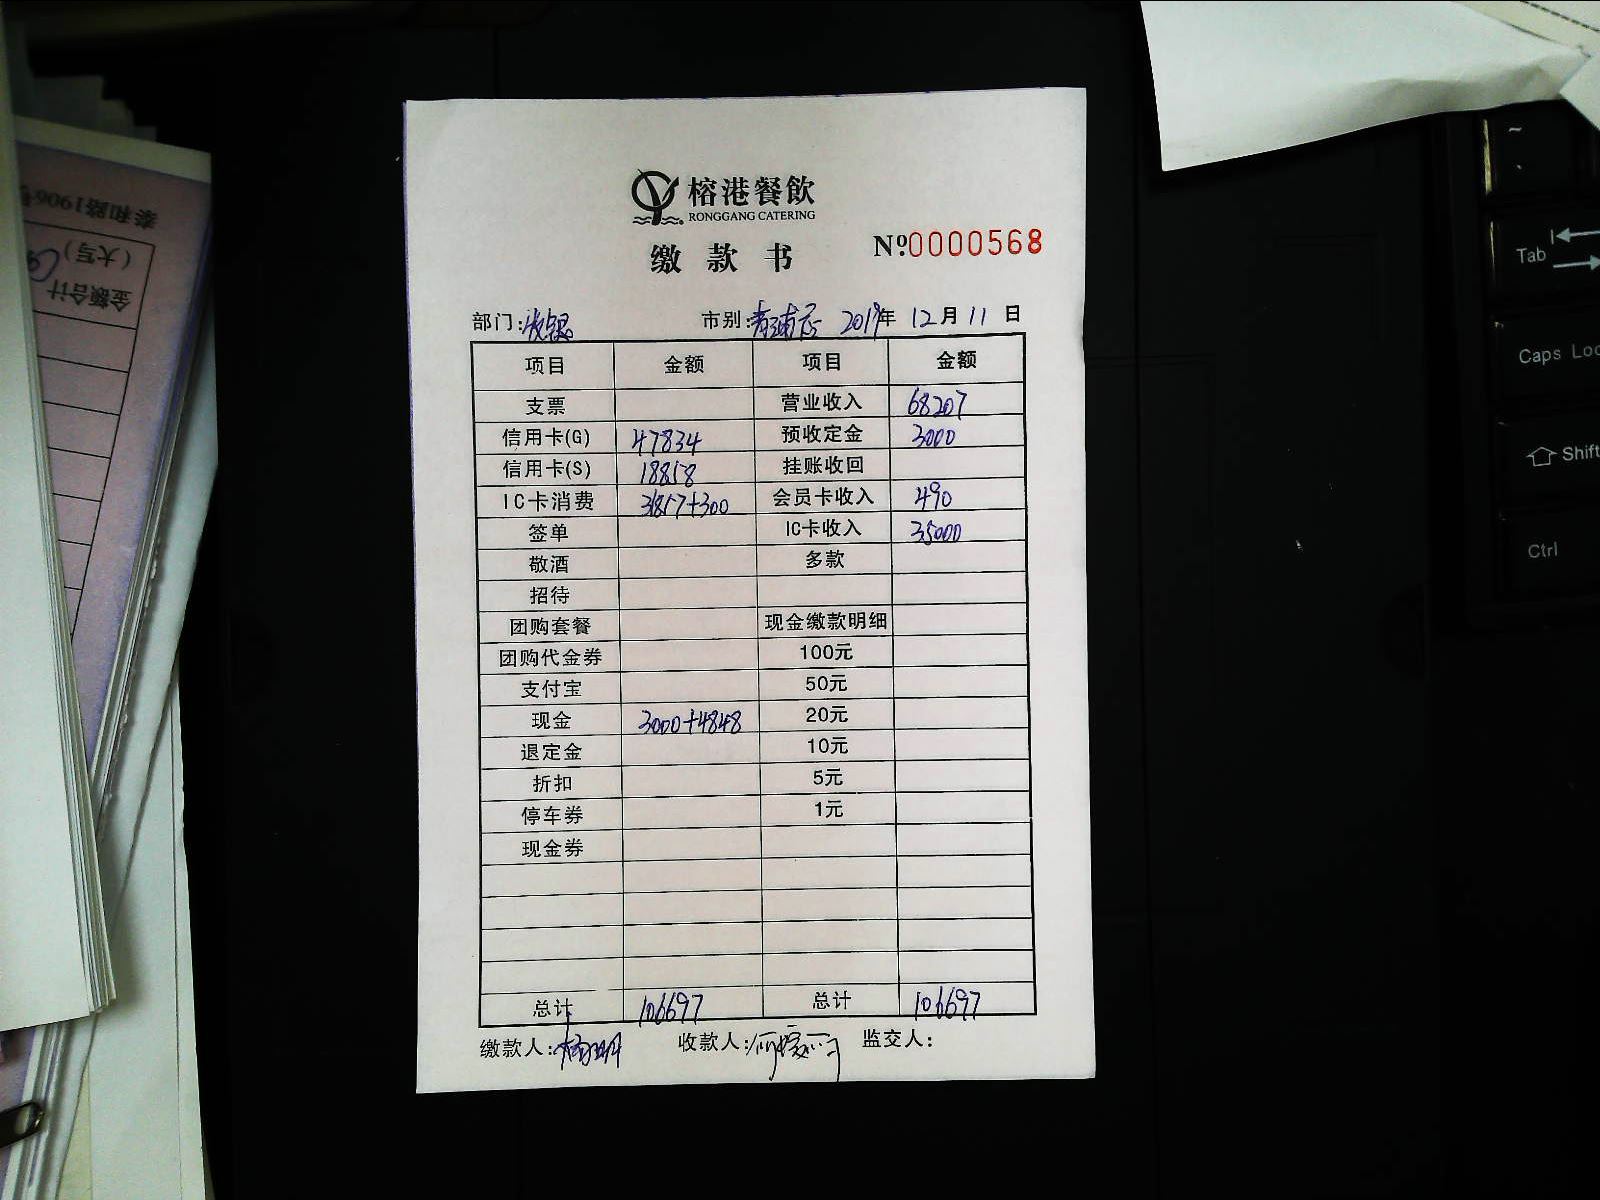 泰和路1906号
（大写）
金额合计
榕港餐飲
RONGGANG CATERING
缴款书
Nº0000568
部门:收银 市别: 2019年12月11日
项目 金额 项目 金额
支票 营业收入 68207
信用卡(G) 47834 预收定金 3000
信用卡(S) 18858 挂账收回
IC卡消费 31857+300 会员卡收入 490
签单 IC卡收入 35000
敬酒 多款
招待
团购套餐 现金缴款明细
团购代金券 100元
支付宝 50元
现金 3000+4848 20元
退定金 10元
折扣 5元
停车券 1元
现金券
总计 106697 总计 106697
缴款人: 收款人: 监交人:
~
Tab
Caps Loc
Shift
Ctrl